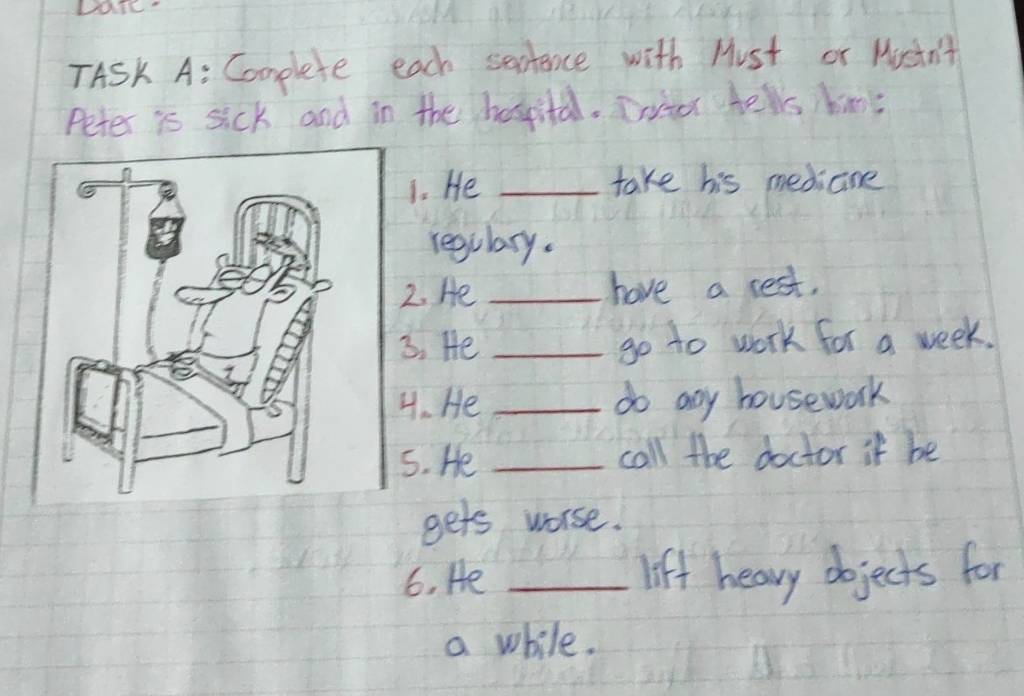 Date.
TASK A: Complete each sentence with Must or Mustn't
Peter is sick and in the hospital. Doctor tells him:
1. He ____ take his medicine
regulary.
2. He ____ have a rest.
3. He ____ go to work for a week.
4. He ____ do any housework
5. He ____ call the doctor if he
gets worse.
6. He ____ lift heavy objects for
a while.